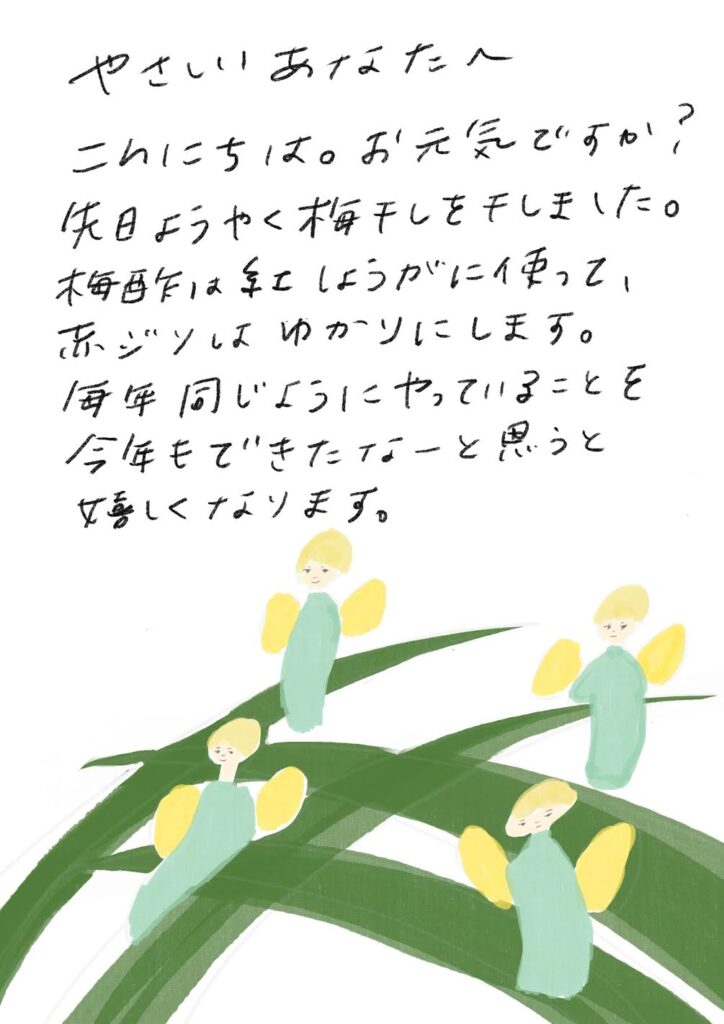 やさしいあなたへ
こんにちは。お元気ですか？
先日ようやく梅干しを干しました。
梅酢は紅しょうがに使って、
赤ジソはゆかりにします。
毎年同じようにやっていることを
今年もできたなーと思うと
嬉しくなります。